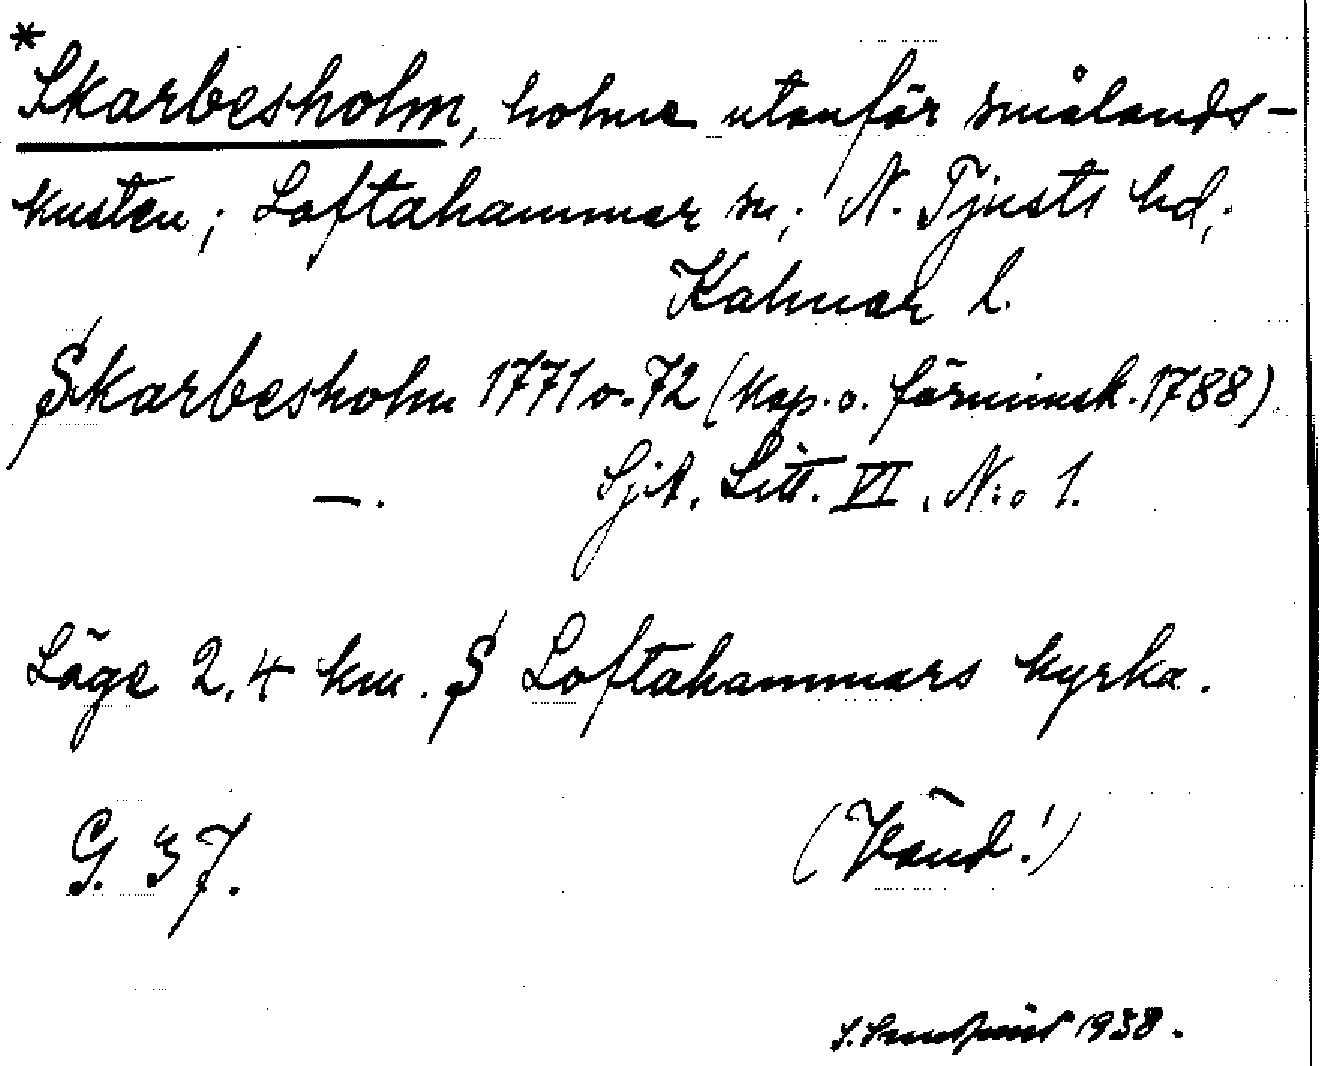 *Skarbesholm, holme utanför smålands-
kusten; Loftahammar sn; N. Tjusts hd;
Kalmar l.
Skarbesholm 1771 o. 72 (kop. o. förminsk. 1788)
—. Sjik. Litt. VI. N:o 1.
Läge 2,4 km. S Loftahammars kyrka.
G. 37. (Vänd!)
1938.